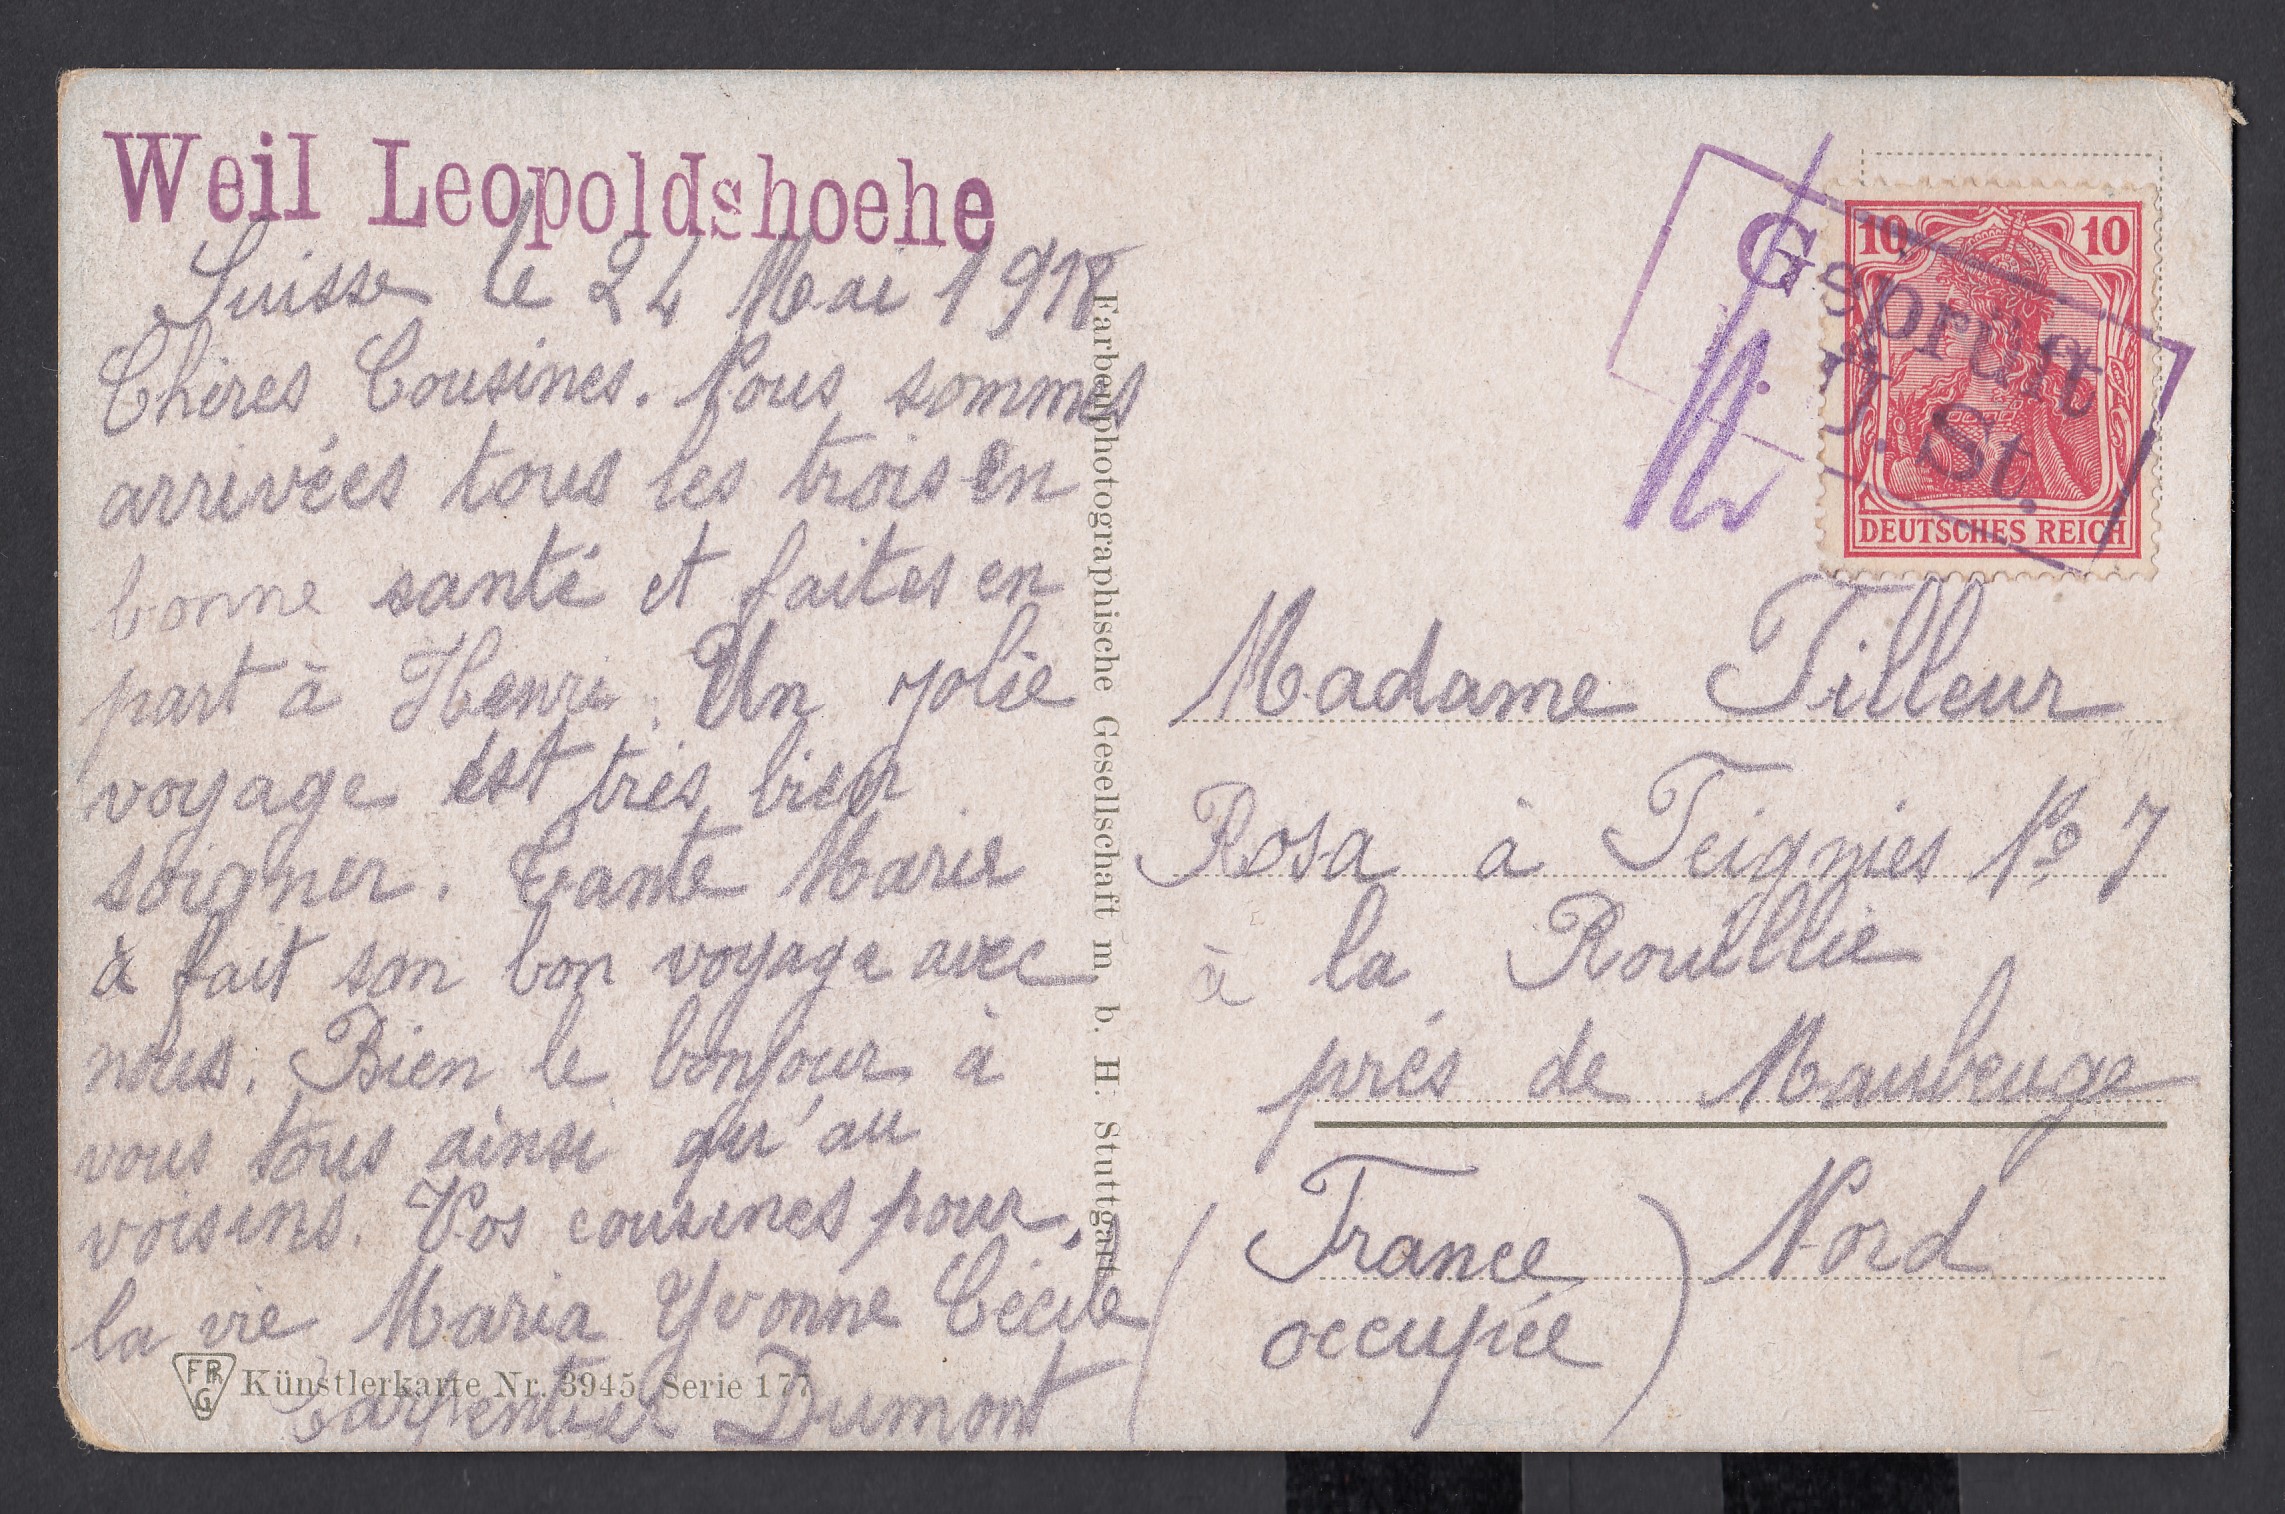 Weil Leopoldshoehe
Suisse le 24 Mai 1918
Chères Cousines. Nous sommes
arrivées tous les trois en
bonne santé et faites en
part à Henri. Un jolie
voyage est très bien
soigner. Tante Marie
à fait son bon voyage avec
nous. Bien le bonjour à
vous tous ainsi qu'au
voisins. Vos cousines pour
la vie Maria Yvonne Cécile
Carpentier Dumont
FPG Künstlerkarte Nr. 3945 Serie 177
Farbenphotographische Gesellschaft m. b. H. Stuttgart
Geprüft
St.
10 10
DEUTSCHES REICH
Madame Tilleur
Rosa à Feignies No 7
à la Rouillie
près de Maubeuge
(France occupée) Nord